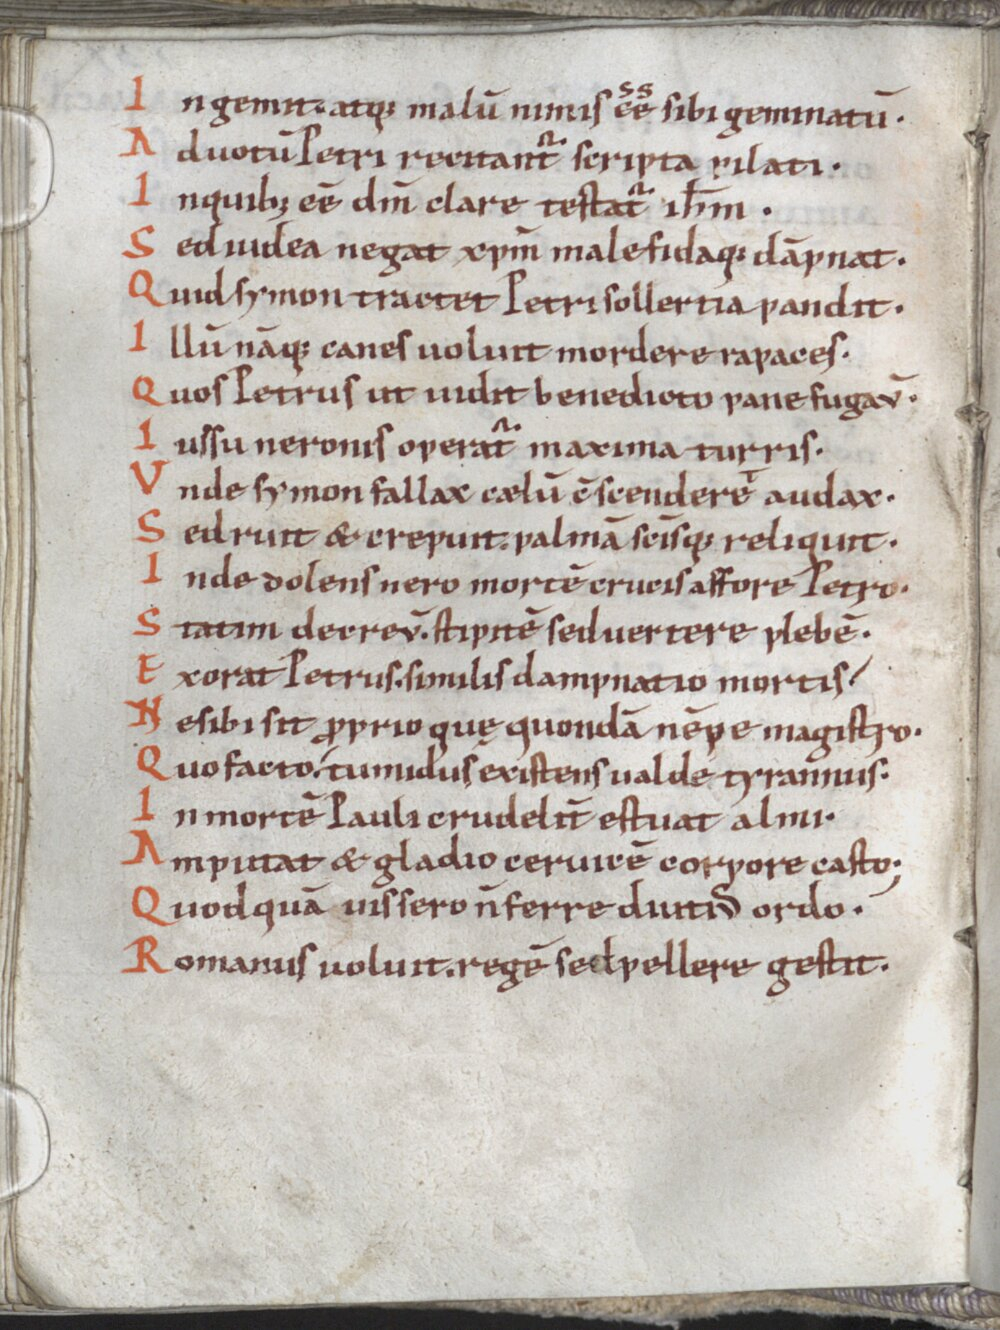 Ingemit. atq; malū nimis ēē sibi geminatū.
Aduotū Petri recitant᷑ scripta pilati.
Inquib; eē dm̄ clare testat᷑ ih̄m.
Sed iudea negat xpm̄ malefidaq; dāpnat.
Quid symon tractet Petri sollertia pandit.
Illū nāq; canes uoluit mordere rapaces.
Quos Petrus ut uidit benedicto pane fugav̄.
Iussu neronis operat᷑ maxima turris.
Vnde symon fallax cælū c̄scenderet audax.
Sed ruit & crepuit. palmā scīsq; reliquit.
Inde dolens nero mortē crucis affore Petro.
Statim decrev̄. stipitē sed uertere plebē.
Exorat Petrus. similis dampnatio mortis/
Ne sibi sit ꝓprio quę quondā nēpe magistro.
Quo facto. tumidus existens ualde tyrannus.
In mortē Pauli crudelit̄ estuat almi.
Amputat & gladio ceruicē corpore casto;
Quod quā uis sero n̄ ferre diutiꝰ ordo.
Romanus uoluit. regē sed pellere gestit.